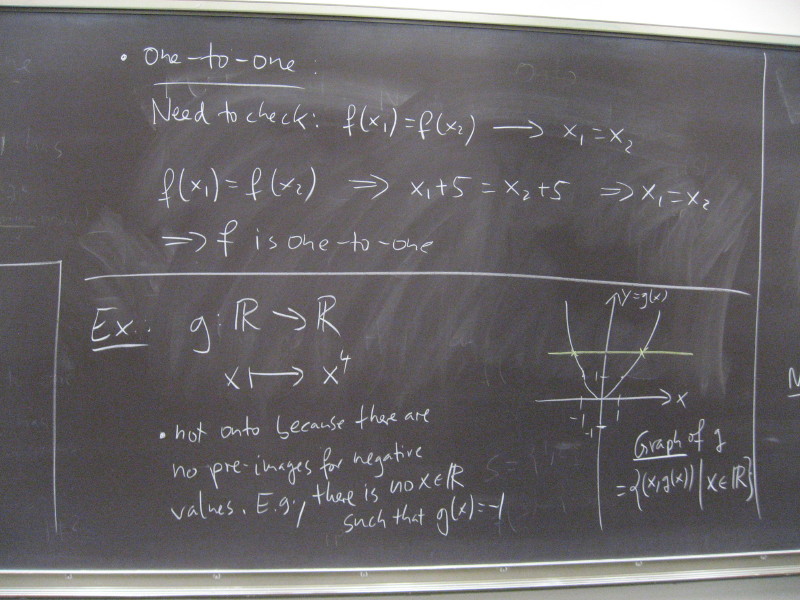 • one-to-one:
Need to check: f(x₁)=f(x₂) ⟶ x₁=x₂
f(x₁)=f(x₂) ⟹ x₁+5=x₂+5 ⟹ x₁=x₂
⟹ f is one-to-one
Ex.: g: ℝ → ℝ
x ⟼ x⁴
• not onto because there are
no pre-images for negative
values. E.g., there is no x∈ℝ
such that g(x)=-1
y=g(x)
1
x
-1 1
-1
Graph of g
={(x,g(x)) | x∈ℝ}